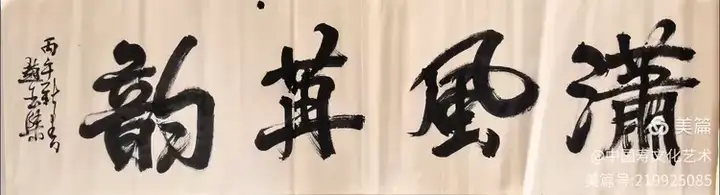 瀟風苒韵
丙午新春
美篇
@中国寿文化艺术
美篇号:219925085